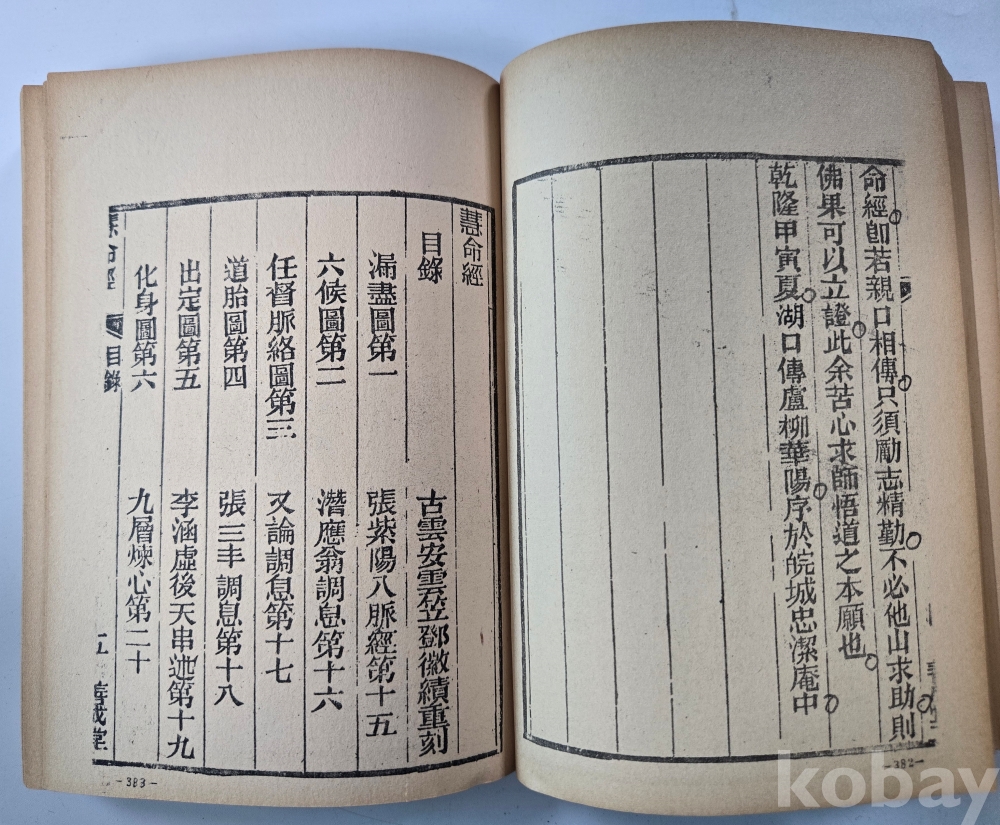 命經卽若親口相傳只須勵志精勤不必他山求助則
佛果可以立證此余苦心求師悟道之本願也
乾隆甲寅夏湖口傳盧柳華陽序於皖城忠潔庵中
-382-
慧命經
目錄
古雲安雲笠鄧徽績重刻
漏盡圖第一
張紫陽八脈經第十五
六候圖第二
潛應翁調息第十六
任督脈絡圖第三
又論調息第十七
道胎圖第四
張三丰調息第十八
出定圖第五
李涵虛後天串述第十九
化身圖第六
九層煉心第二十
慧命經
目錄
五
善成堂
-383-
kobay